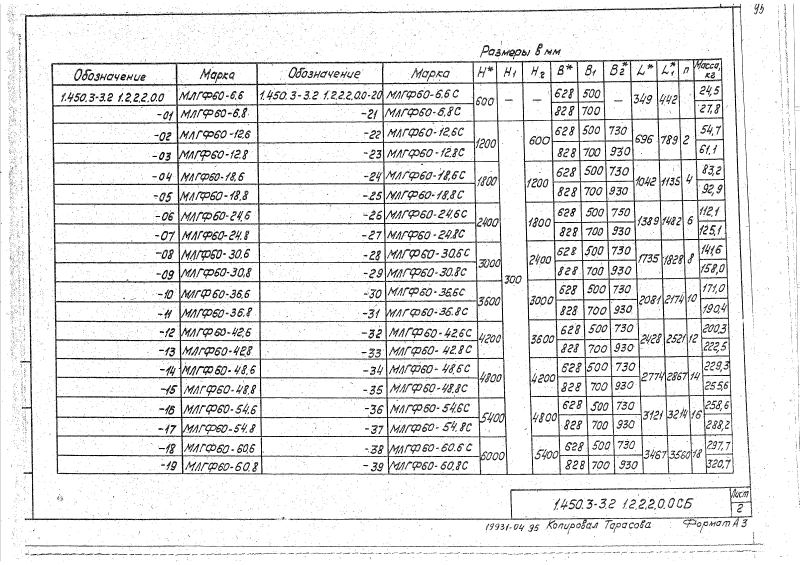 95
Размеры в мм
Обозначение Марка Обозначение Марка H* H1 H2 B* B1 B2* L* L1* n Масса, кг
1.450.3-3.2 1.2.2.2.0.0 МЛГФ60-6,6 1.450.3-3.2 1.2.2.2.0.0-20 МЛГФ60-6,6С 600 300 — 628 500 — 349 442 24,5
-01 МЛГФ60-6.8 -21 МЛГФ60-6,8С 828 700 27,8
-02 МЛГФ60-12,6 -22 МЛГФ60-12,6С 1200 600 628 500 730 696 789 2 54,7
-03 МЛГФ60-12.8 -23 МЛГФ60-12,8С 828 700 930 61,1
-04 МЛГФ60-18,6 -24 МЛГФ60-18,6С 1800 1200 628 500 730 1042 1135 4 83,2
-05 МЛГФ60-18,8 -25 МЛГФ60-18,8С 828 700 930 92,9
-06 МЛГФ60-24,6 -26 МЛГФ60-24,6С 2400 1800 628 500 750 1389 1482 6 112,1
-07 МЛГФ60-24,8 -27 МЛГФ60-24.8С 828 700 930 125,1
-08 МЛГФ60-30,6 -28 МЛГФ60-30,6С 3000 2400 628 500 730 1735 1828 8 141,6
-09 МЛГФ60-30,8 -29 МЛГФ60-30.8С 828 700 930 158,0
-10 МЛГФ60-36,6 -30 МЛГФ60-36,6С 3600 3000 628 500 730 2081 2174 10 171,0
-11 МЛГФ60-36.8 -31 МЛГФ60-36.8С 828 700 930 190,4
-12 МЛГФ60-42,6 -32 МЛГФ60-42,6С 4200 3600 628 500 730 2428 2521 12 200,3
-13 МЛГФ60-42.8 -33 МЛГФ60-42.8С 828 700 930 222,5
-14 МЛГФ60-48,6 -34 МЛГФ60-48,6С 4800 4200 628 500 730 2774 2867 14 229,3
-15 МЛГФ60-48,8 -35 МЛГФ60-48,8С 828 700 930 255,6
-16 МЛГФ60-54,6 -36 МЛГФ60-54,6С 5400 4800 628 500 730 3121 3214 16 258,6
-17 МЛГФ60-54,8 -37 МЛГФ60-54,8С 828 700 930 288,2
-18 МЛГФ60-60,6 -38 МЛГФ60-60.6С 6000 5400 628 500 730 3467 3560 18 297,7
-19 МЛГФ60-60.8 -39 МЛГФ60-60,8С 828 700 930 320,7
1.450.3-3.2 1.2.2.2.0.0СБ Лист 2
19931-04 95 Копировал Тарасова Формат А3